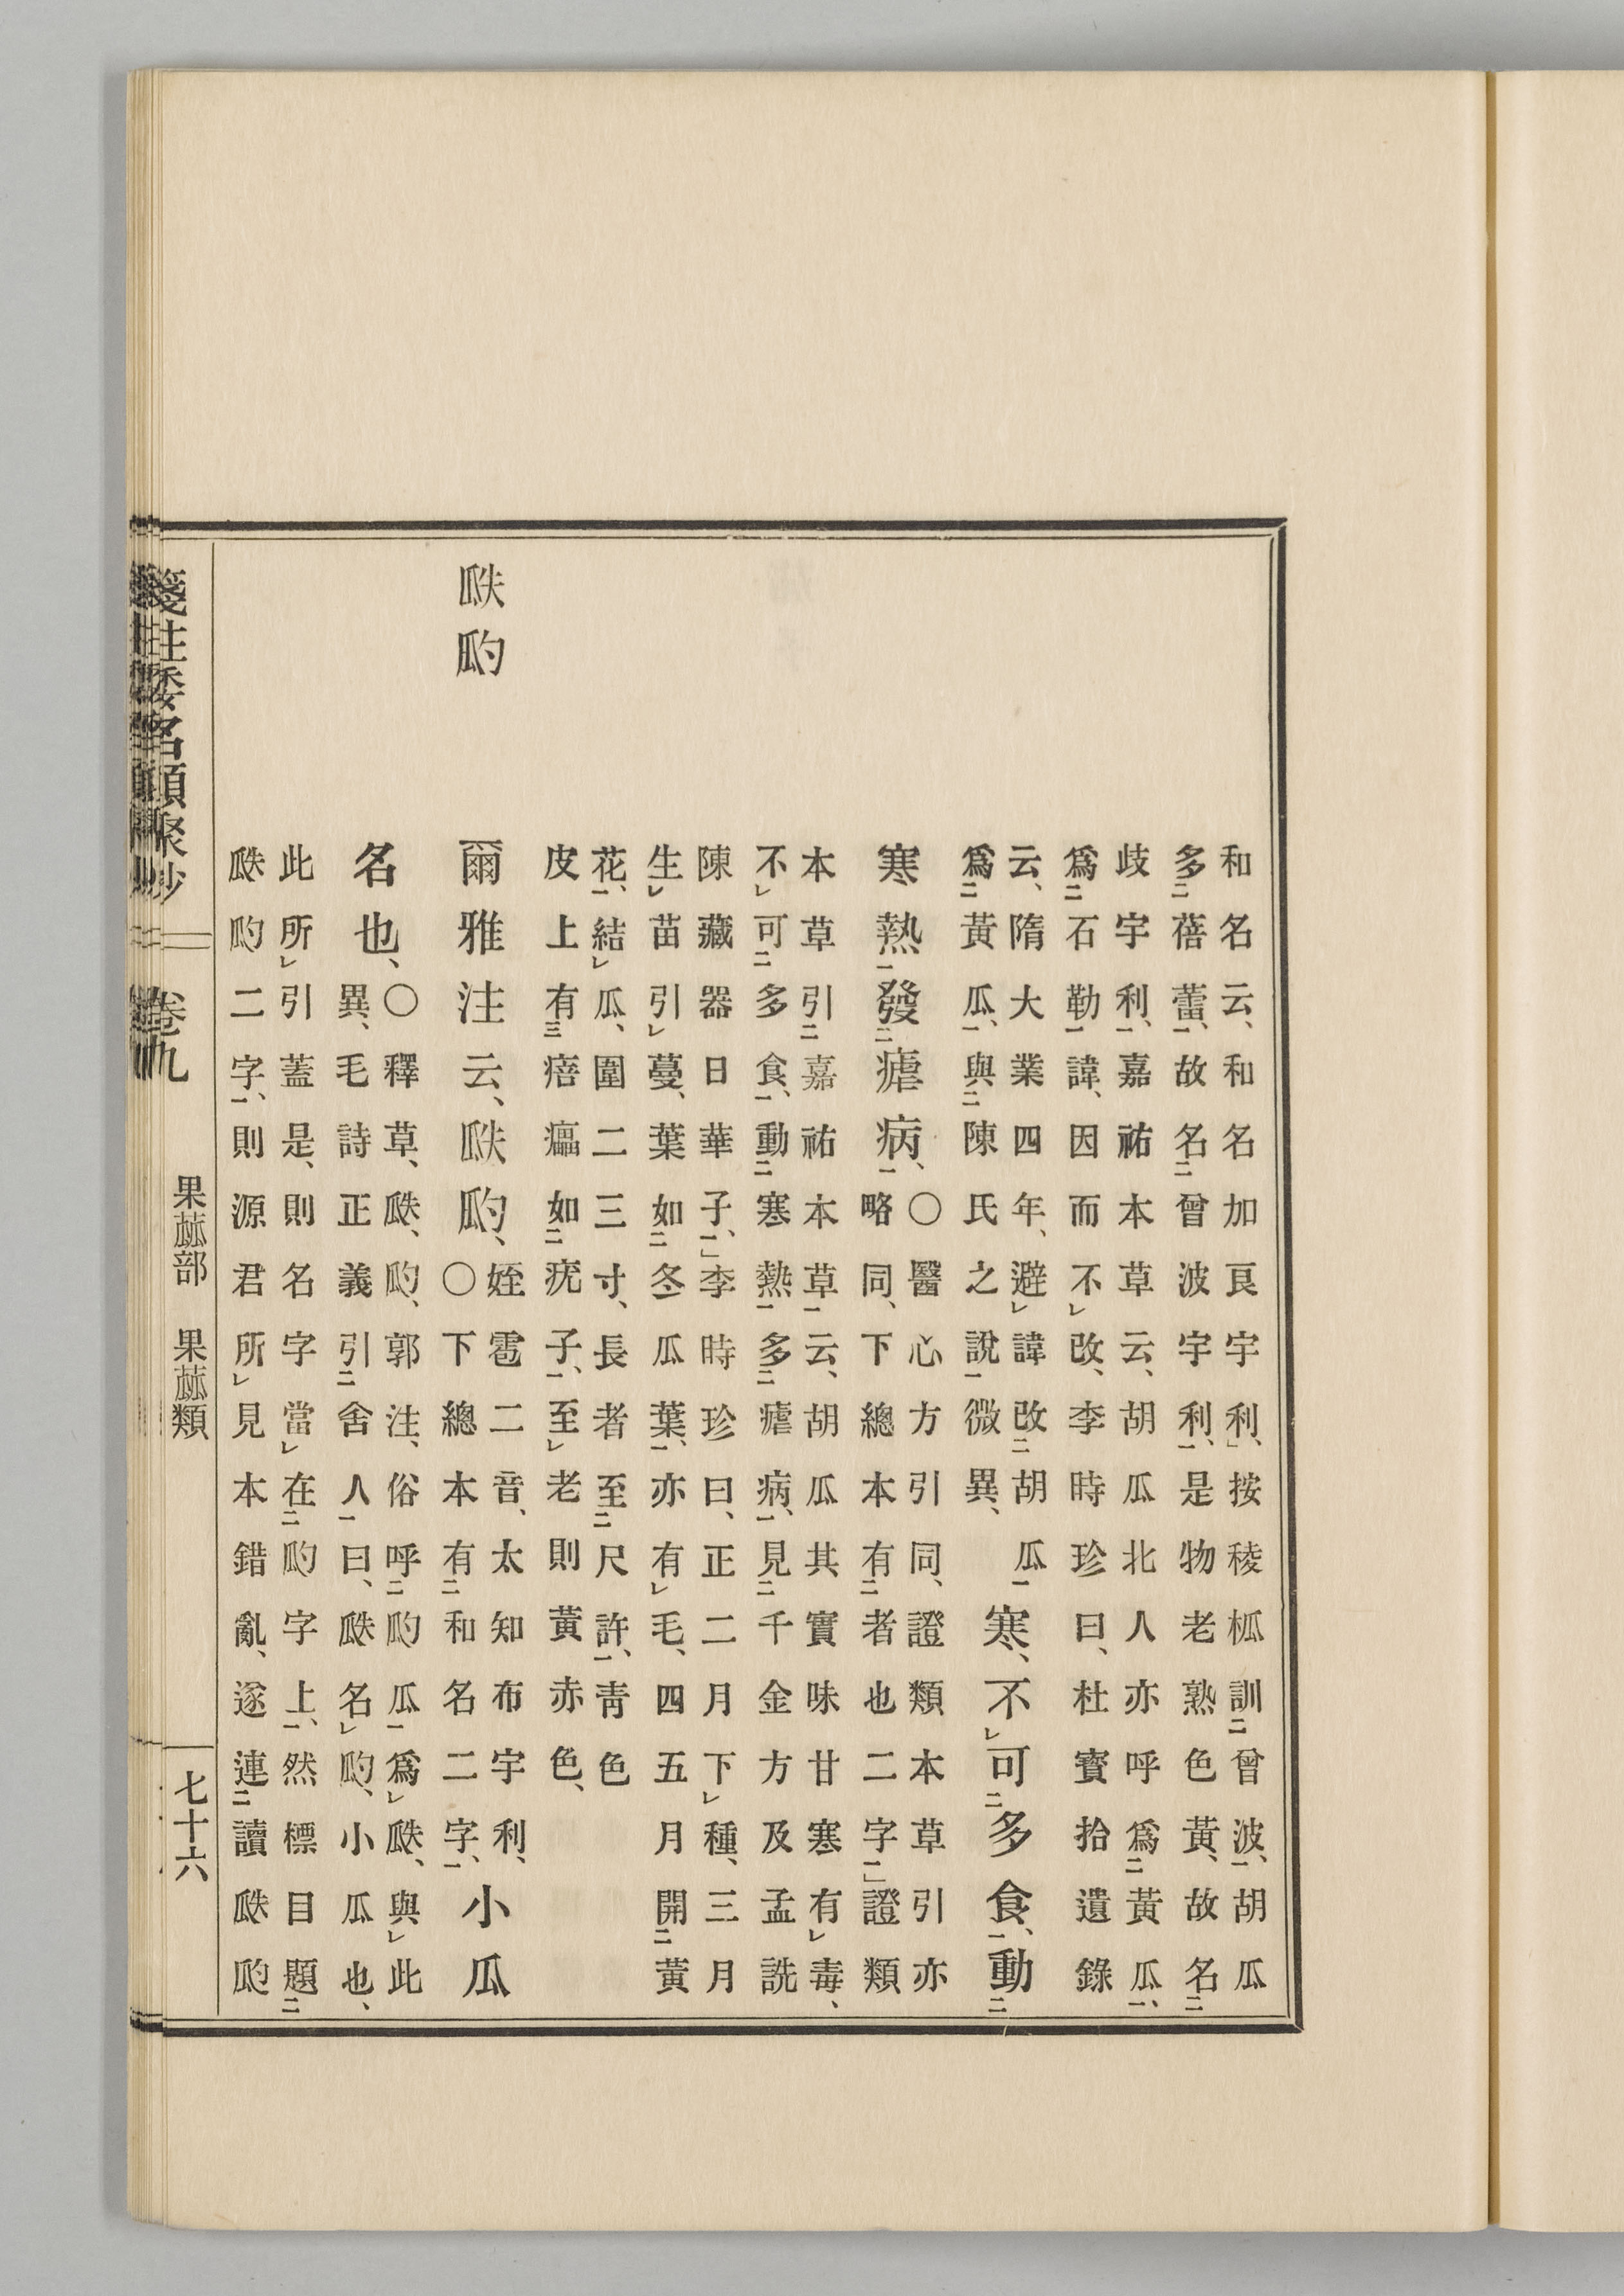 和名云、和名加良宇利」、按稜柧訓㆓曾波㆒、胡瓜
多㆓蓓蕾㆒、故名㆓曾波宇利㆒、是物老熟色黃、故名㆓
歧宇利㆒、嘉祐本草云、胡瓜北人亦呼爲㆓黃瓜㆒、
爲㆓石勒㆒諱、因而不㆑改、李時珍曰、杜寶拾遺錄
云、隋大業四年、避㆑諱改㆓胡瓜㆒
爲㆓黃瓜㆒、與㆓陳氏之說㆒微異、
寒、不㆑可㆓多食㆒、動㆓
寒熱㆒發㆓瘧病㆒、
〇醫心方引同、證類本草引亦
略同、下總本有㆓者也二字㆒」證類
本草引㆓嘉祐本草㆒云、胡瓜其實味甘寒有㆑毒、
不㆑可㆓多食㆒、動㆓寒熱㆒多㆓瘧病㆒、見㆓千金方及孟詵
陳藏器日華子㆒、」李時珍曰、正二月下㆑種、三月
生㆑苗引㆑蔓、葉如㆓冬瓜葉㆒、亦有㆑毛、四五月開㆓黃
花㆒、結㆑瓜、圍二三寸、長者至㆓尺許㆒、靑色
皮上有㆔痦㿔如㆓疣子㆒、至㆑老則黃赤色、
瓞瓝
爾雅注云、瓞瓝、
姪雹二音、太知布宇利、
〇下總本有㆓和名二字㆒、
小瓜
名也、
〇釋草、瓞、瓝、郭注、俗呼㆓瓝瓜㆒爲㆑瓞、與㆑此
異、毛詩正義引㆓舍人㆒曰、瓞名㆑瓝、小瓜也、
此所㆑引蓋是、則名字當㆑在㆓瓝字上㆒、然標目題㆓
瓞瓝二字㆒、則源君所㆑見本錯亂、遂連㆓讀瓞瓝
箋注倭名類聚抄 卷九 果蓏部 果蓏類 七十六